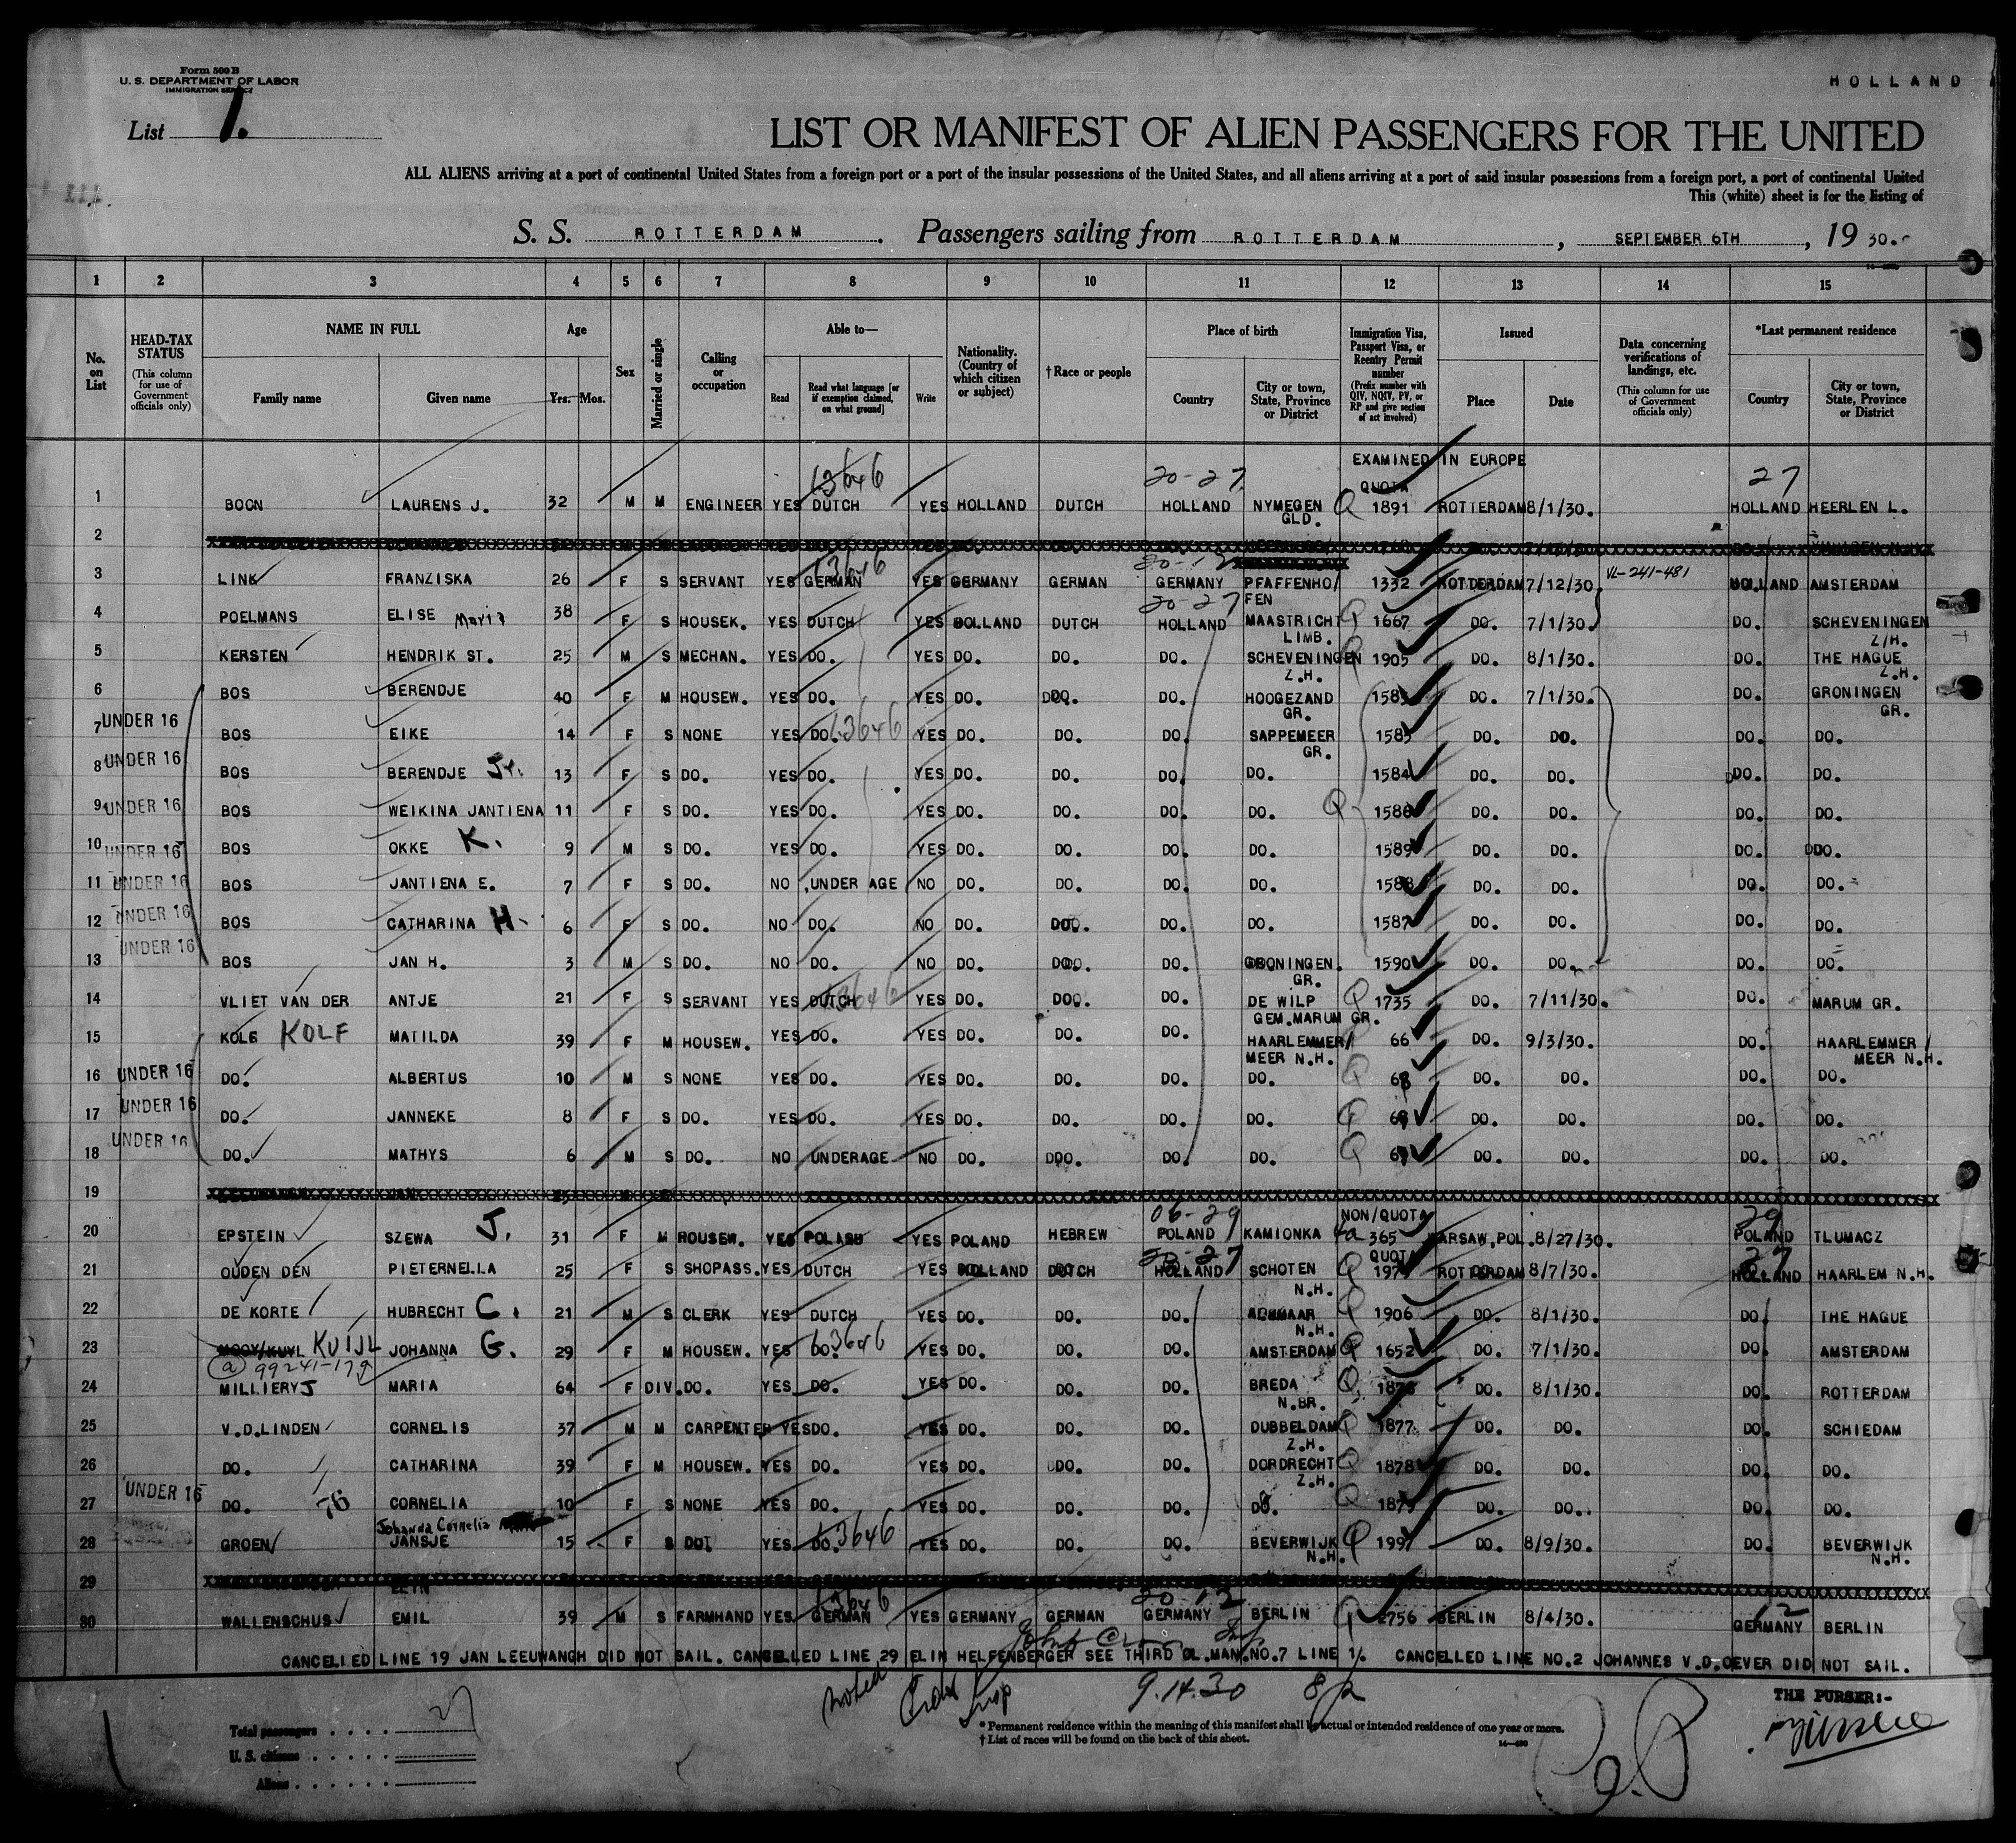 Form 500 B
U. S. DEPARTMENT OF LABOR
IMMIGRATION SERVICE
HOLLAND
List 1.
LIST OR MANIFEST OF ALIEN PASSENGERS FOR THE UNITED
ALL ALIENS arriving at a port of continental United States from a foreign port or a port of the insular possessions of the United States, and all aliens arriving at a port of said insular possessions from a foreign port, a port of continental United
This (white) sheet is for the listing of
S. S. ROTTERDAM. Passengers sailing from ROTTERDAM, SEPTEMBER 6TH, 19 30.
1 2 3 4 5 6 7 8 9 10 11 12 13 14 15
No. on List
HEAD-TAX STATUS (This column for use of Government officials only)
NAME IN FULL Family name Given name
Age Yrs. Mos.
Sex
Married or single
Calling or occupation
Able to— Read Read what language [or if exemption claimed, on what ground] Write
Nationality. (Country of which citizen or subject)
†Race or people
Place of birth Country City or town, State, Province or District
Immigration Visa, Passport Visa, or Reentry Permit number (Prefix number with QIV, NQIV, PV, or RP and give section of act involved)
Issued Place Date
Data concerning verifications of landings, etc. (This column for use of Government officials only)
*Last permanent residence Country City or town, State, Province or District
EXAMINED IN EUROPE
13646 20-27 QUOTA 27
1 BOON LAURENS J. 32 M M ENGINEER YES DUTCH YES HOLLAND DUTCH HOLLAND NYMEGEN GLD. Q 1891 ROTTERDAM 8/1/30. HOLLAND HEERLEN L.
2
13646 20-12
3 LINK FRANZISKA 26 F S SERVANT YES GERMAN YES GERMANY GERMAN GERMANY PFAFFENHO/FEN 1332 ROTTERDAM 7/12/30. VL-241-481 HOLLAND AMSTERDAM
20-27
4 POELMANS ELISE Maria 38 F S HOUSEK. YES DUTCH YES HOLLAND DUTCH HOLLAND MAASTRICHT LIMB. Q 1667 DO. 7/1/30. DO. SCHEVENINGEN Z/H.
5 KERSTEN HENDRIK ST. 25 M S MECHAN. YES DO. YES DO. DO. DO. SCHEVENINGEN Z.H. Q 1905 DO. 8/1/30. DO. THE HAGUE Z.H.
6 BOS BERENDJE 40 F M HOUSEW. YES DO. YES DO. DO. DO. HOOGEZAND GR. DO. 7/1/30. DO. GRONINGEN GR.
7 UNDER 16 BOS EIKE 14 F S NONE YES DO. 13646 YES DO. DO. DO. SAPPEMEER GR. 1585 DO. DO. DO. DO.
8 UNDER 16 BOS BERENDJE Jr. 13 F S DO. YES DO. YES DO. DO. DO. DO. 1584 DO. DO. DO. DO.
9 UNDER 16 BOS WEIKINA JANTIENA 11 F S DO. YES DO. YES DO. DO. DO. DO. Q 1586 DO. DO. DO. DO.
10 UNDER 16 BOS OKKE K. 9 M S DO. YES DO. YES DO. DO. DO. DO. 1589 DO. DO. DO. DO.
11 UNDER 16 BOS JANTIENA E. 7 F S DO. NO UNDER AGE NO DO. DO. DO. DO. 1588 DO. DO. DO. DO.
12 UNDER 16 BOS CATHARINA H. 6 F S DO. NO DO. NO DO. DO. DO. DO. 1587 DO. DO. DO. DO.
13 UNDER 16 BOS JAN H. 3 M S DO. NO DO. NO DO. DO. DO. GRONINGEN. GR. 1590 DO. DO. DO. DO.
14 VLIET VAN DER ANTJE 21 F S SERVANT YES DUTCH 13646 YES DO. DO. DO. DE WILP GEM.MARUM GR. Q 1735 DO. 7/11/30. DO. MARUM GR.
15 KOLF MATILDA 39 F M HOUSEW. YES DO. YES DO. DO. DO. HAARLEMMER/MEER N.H. 66 DO. 9/3/30. DO. HAARLEMMER/MEER N.H.
16 UNDER 16 DO. ALBERTUS 10 M S NONE YES DO. YES DO. DO. DO. DO. Q DO. DO. DO. DO.
17 UNDER 16 DO. JANNEKE 8 F S DO. YES DO. YES DO. DO. DO. DO. Q DO. DO. DO. DO.
18 UNDER 16 DO. MATHYS 6 M S DO. NO UNDERAGE NO DO. DO. DO. DO. Q DO. DO. DO. DO.
19
06-29 NON/QUOTA 29
20 EPSTEIN SZEWA J. 31 F M HOUSEW. YES POLISH YES POLAND HEBREW POLAND KAMIONKA 4a 365 WARSAW,POL. 8/27/30. POLAND TLUMACZ
20-27 QUOTA 27
21 OUDEN DEN PIETERNELLA 25 F S SHOPASS. YES DUTCH YES HOLLAND DUTCH HOLLAND SCHOTEN N.H. Q ROTTERDAM 8/7/30. HOLLAND HAARLEM N.H.
22 DE KORTE HUBRECHT C. 21 M S CLERK YES DUTCH YES DO. DO. DO. N.H. Q 1906 DO. 8/1/30. DO. THE HAGUE
23 MOOY/KUYL KUIJL JOHANNA G. 29 F M HOUSEW. YES DO. 13646 YES DO. DO. DO. AMSTERDAM Q 1652 DO. 7/1/30. DO. AMSTERDAM
(a) 99241-179
24 MILLIERY MARIA 64 F DIV. DO. YES DO. YES DO. DO. DO. BREDA N.BR. Q DO. 8/1/30. DO. ROTTERDAM
25 V.D.LINDEN CORNELIS 37 M M CARPENTER YES DO. YES DO. DO. DO. DUBBELDAM Z.H. Q 1877 DO. DO. DO. SCHIEDAM
26 DO. CATHARINA 39 F M HOUSEW. YES DO. YES DO. DO. DO. DORDRECHT Z.H. Q 1878 DO. DO. DO. DO.
27 UNDER 16 DO. 76 CORNELIA 10 F S NONE YES DO. YES DO. DO. DO. DO. Q 1879 DO. DO. DO. DO.
Johanna Cornelia
28 GROEN JANSJE 15 F S DO. YES DO. 13646 YES DO. DO. DO. BEVERWIJK N.H. Q 1997 DO. 8/9/30. DO. BEVERWIJK N.H.
29 ELIN
13646 20-12 12
30 WALLENSCHUS EMIL 39 M S FARMHAND YES GERMAN YES GERMANY GERMAN GERMANY BERLIN Q 2756 BERLIN 8/4/30. GERMANY BERLIN
CANCELLED LINE 19 JAN LEEUWANGH DID NOT SAIL. CANCELLED LINE 29 ELIN HELFENBERGER SEE THIRD CL.MAN.NO.7 LINE 1. CANCELLED LINE NO.2 JOHANNES V.D.OEVER DID NOT SAIL.
noted 9.14.30
THE PURSER:-
Total passengers 27
U. S. citizens
Aliens
* Permanent residence within the meaning of this manifest shall be actual or intended residence of one year or more.
† List of races will be found on the back of this sheet.